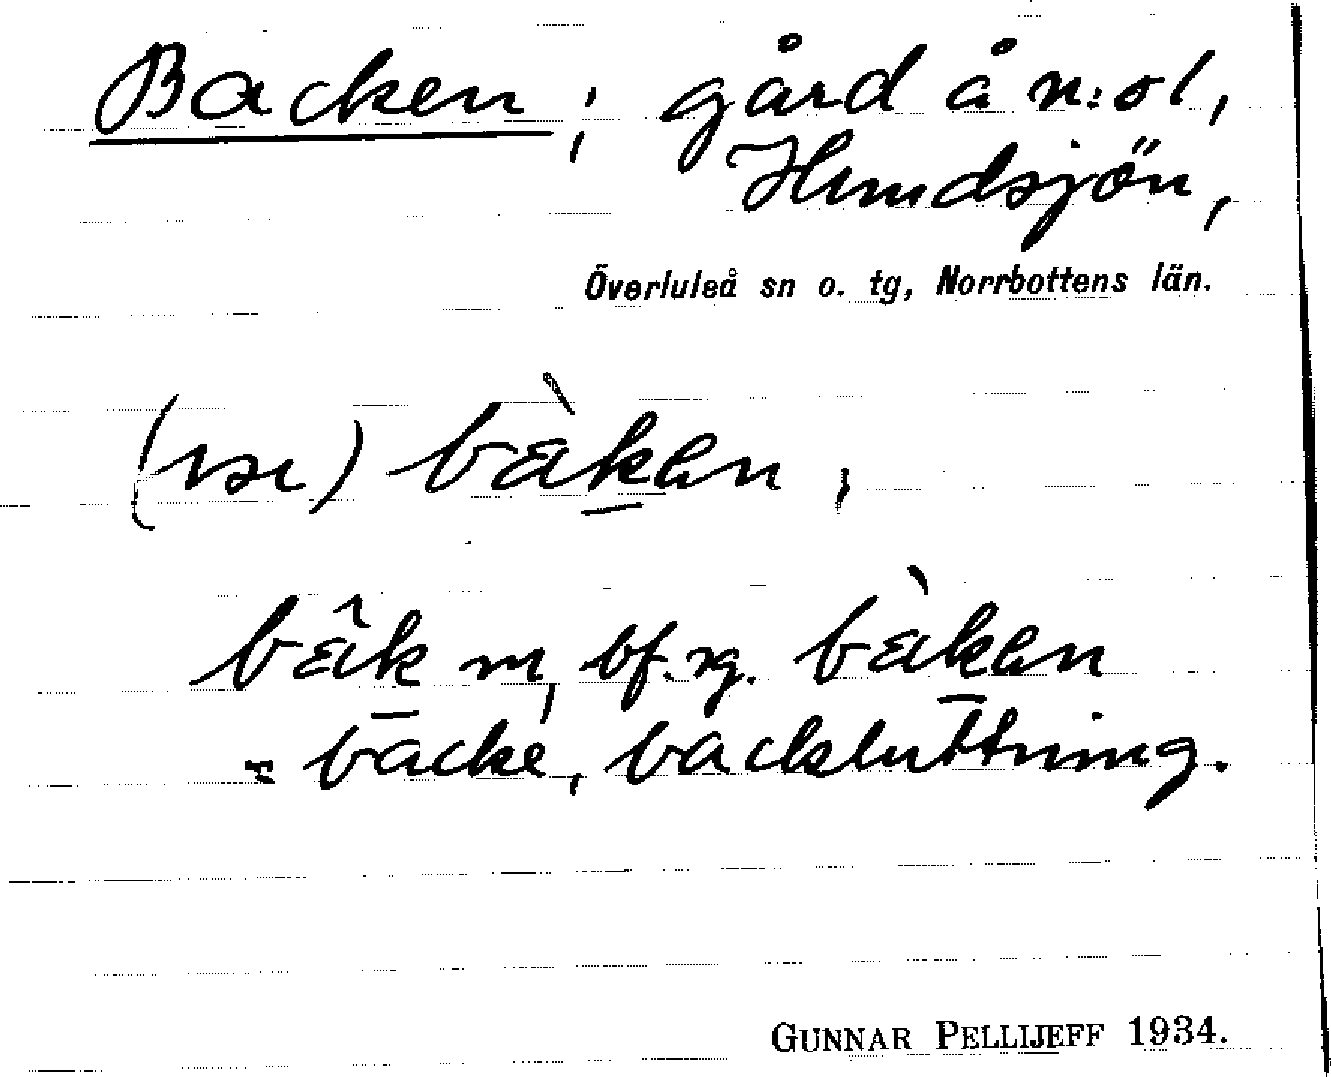 Backen; gård å n:o 1,
Hundsjön,
Överluleå sn o. tg, Norrbottens län.
(på) bàk̲en,
bâk̲ m, bf. sg. bàk̲en
= backe, backsluttning.
GUNNAR PELLIJEFF 1934.